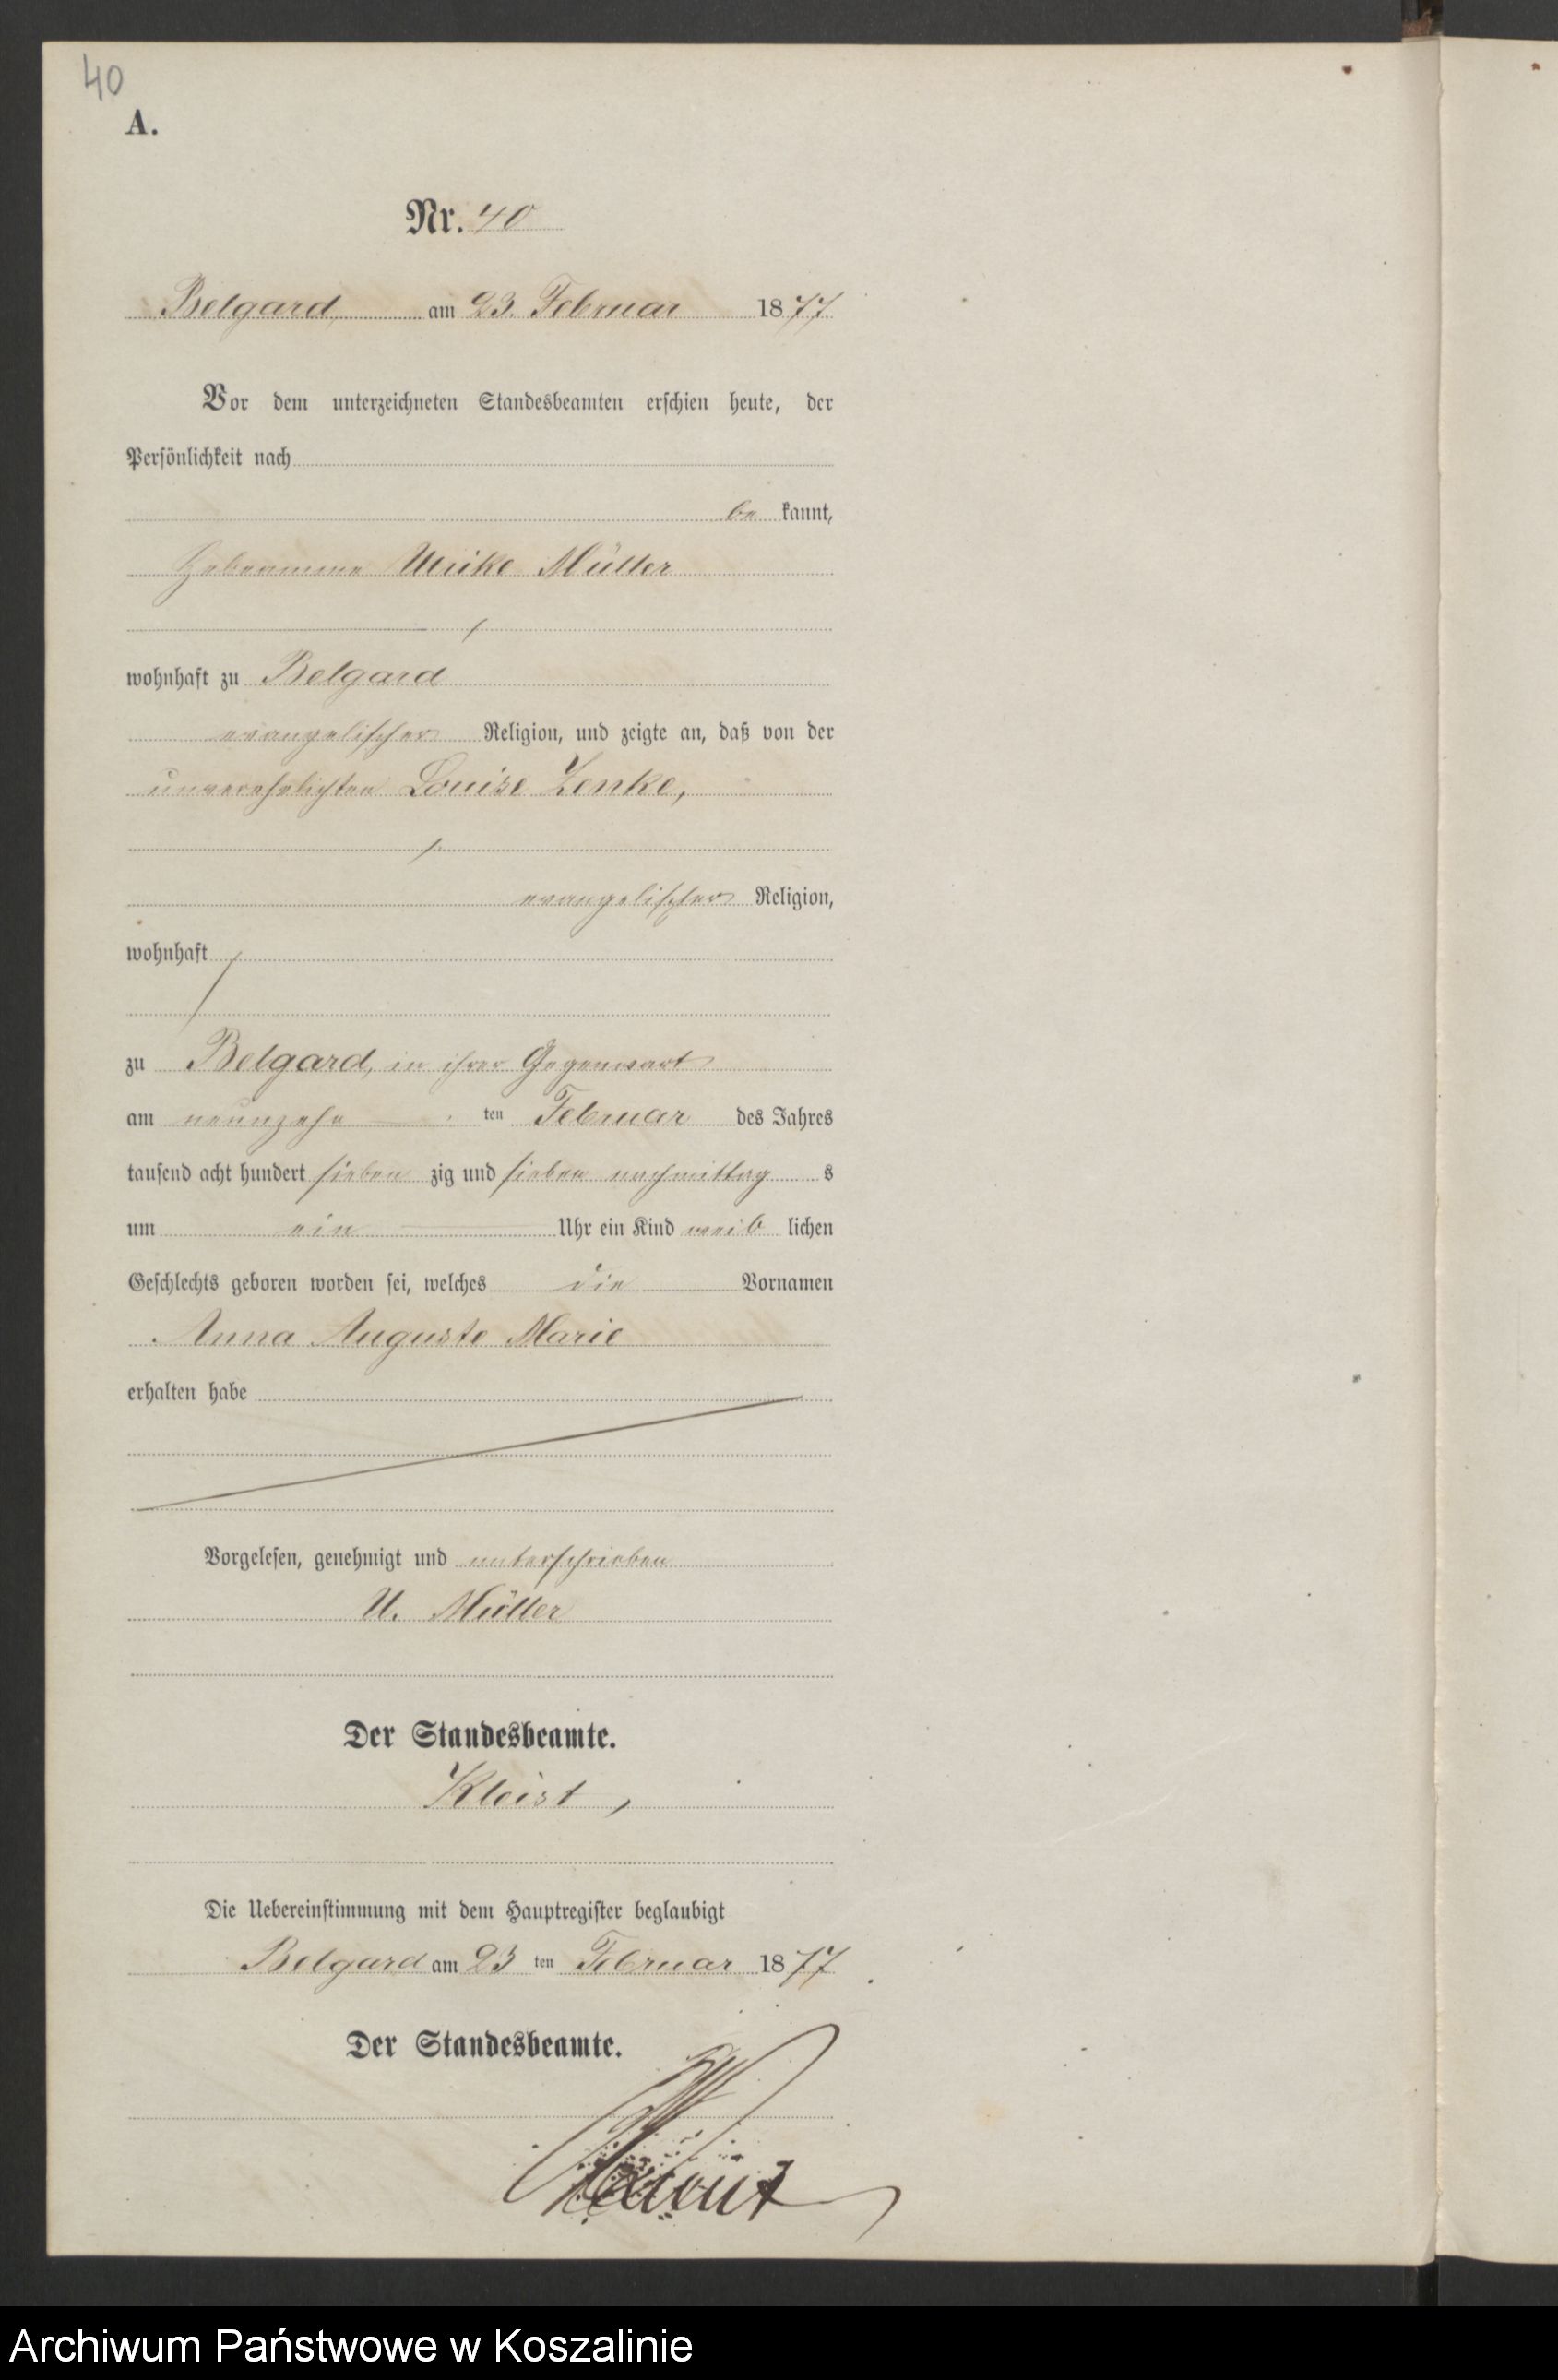 40
A.
Nr. 40
Belgard, am 23. Februar 1877
Vor dem unterzeichneten Standesbeamten erschien heute, der
Persönlichkeit nach
be kannt,
Hebeamme Ulrike Müller
wohnhaft zu Belgard
evangelischer Religion, und zeigte an, daß von der
unverehelichten Louise Zenke,
evangelischer Religion,
wohnhaft
zu Belgard, in ihrer Gegenwart
am neunzehn ten Februar des Jahres
tausend acht hundert sieben zig und sieben nachmittag s
um ein Uhr ein Kind weib lichen
Geschlechts geboren worden sei, welches die Vornamen
Anna Auguste Marie
erhalten habe
Vorgelesen, genehmigt und unterschrieben
U. Müller
Der Standesbeamte.
Kleist,
Die Uebereinstimmung mit dem Hauptregister beglaubigt
Belgard am 23 ten Februar 1877
Der Standesbeamte.
Kleist
Archiwum Państwowe w Koszalinie